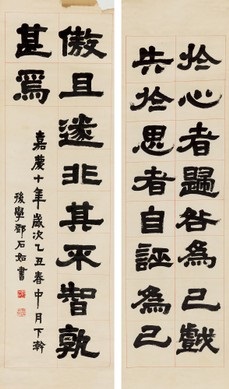 於心者歸咎為己戲
失於思者自誣為己
傲且遂非其不智孰
甚焉
嘉慶十年歲次乙丑春中月下澣
後學鄧石如書